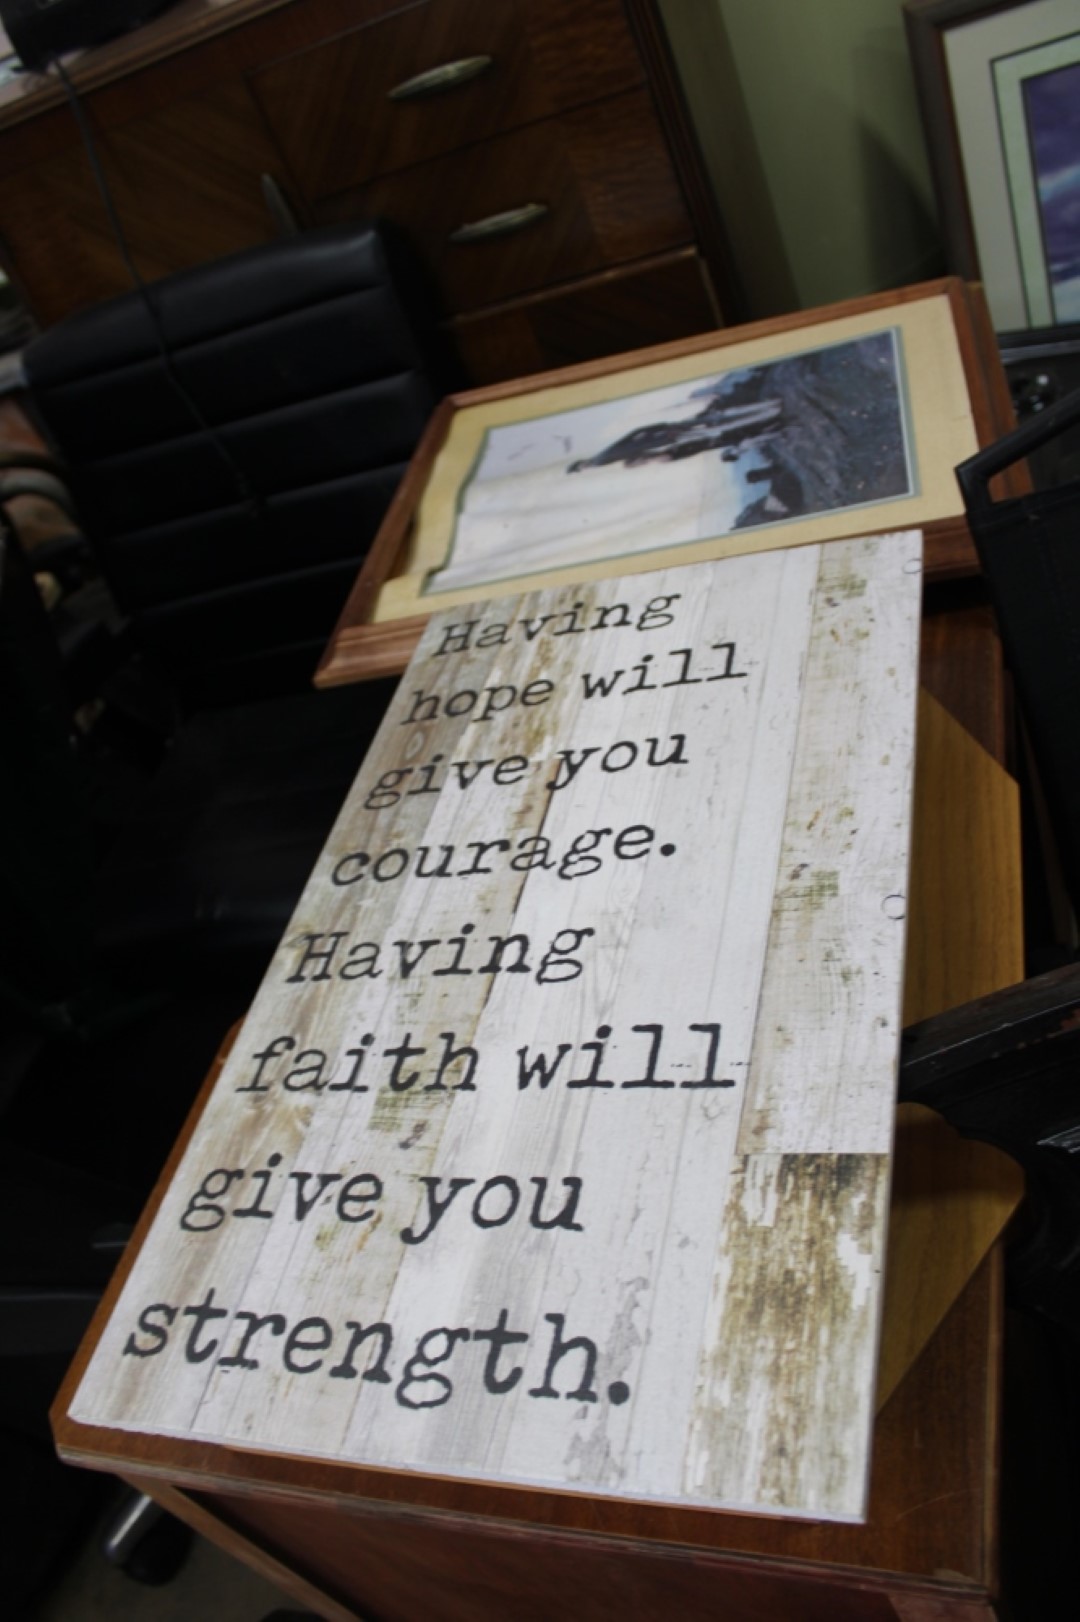 Having
hope will
give you
courage.
Having
faith will
give you
strength.